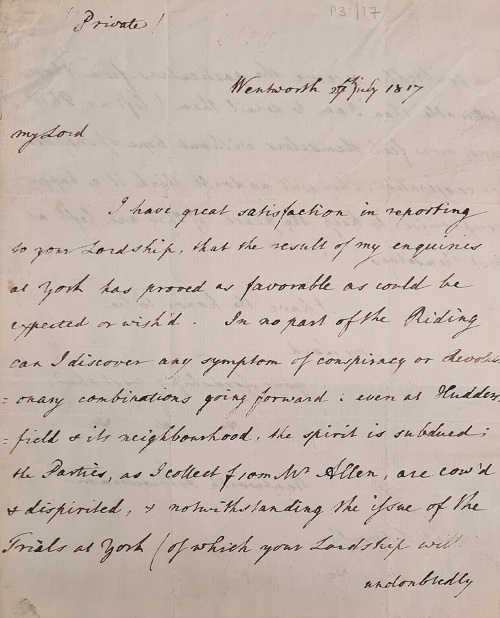 P3/17
Private
Wentworth 27th July 1817
my Lord
I have great satisfaction in reporting
to your Lordship, that the result of my enquiries
at York has proved as favorable as could be
expected or wish'd In no part of the Riding
can I discover any symptom of conspiracy or Revoluti
=onary combinations going forward: even at Hudders
=field & its neighbourhood, the spirit is subdued;
the Parties, as I collect from Mr Allen, are cow'd
& dispirited, & notwithstanding the issue of the
Trials at York (of which your Lordship will
undoubtedly